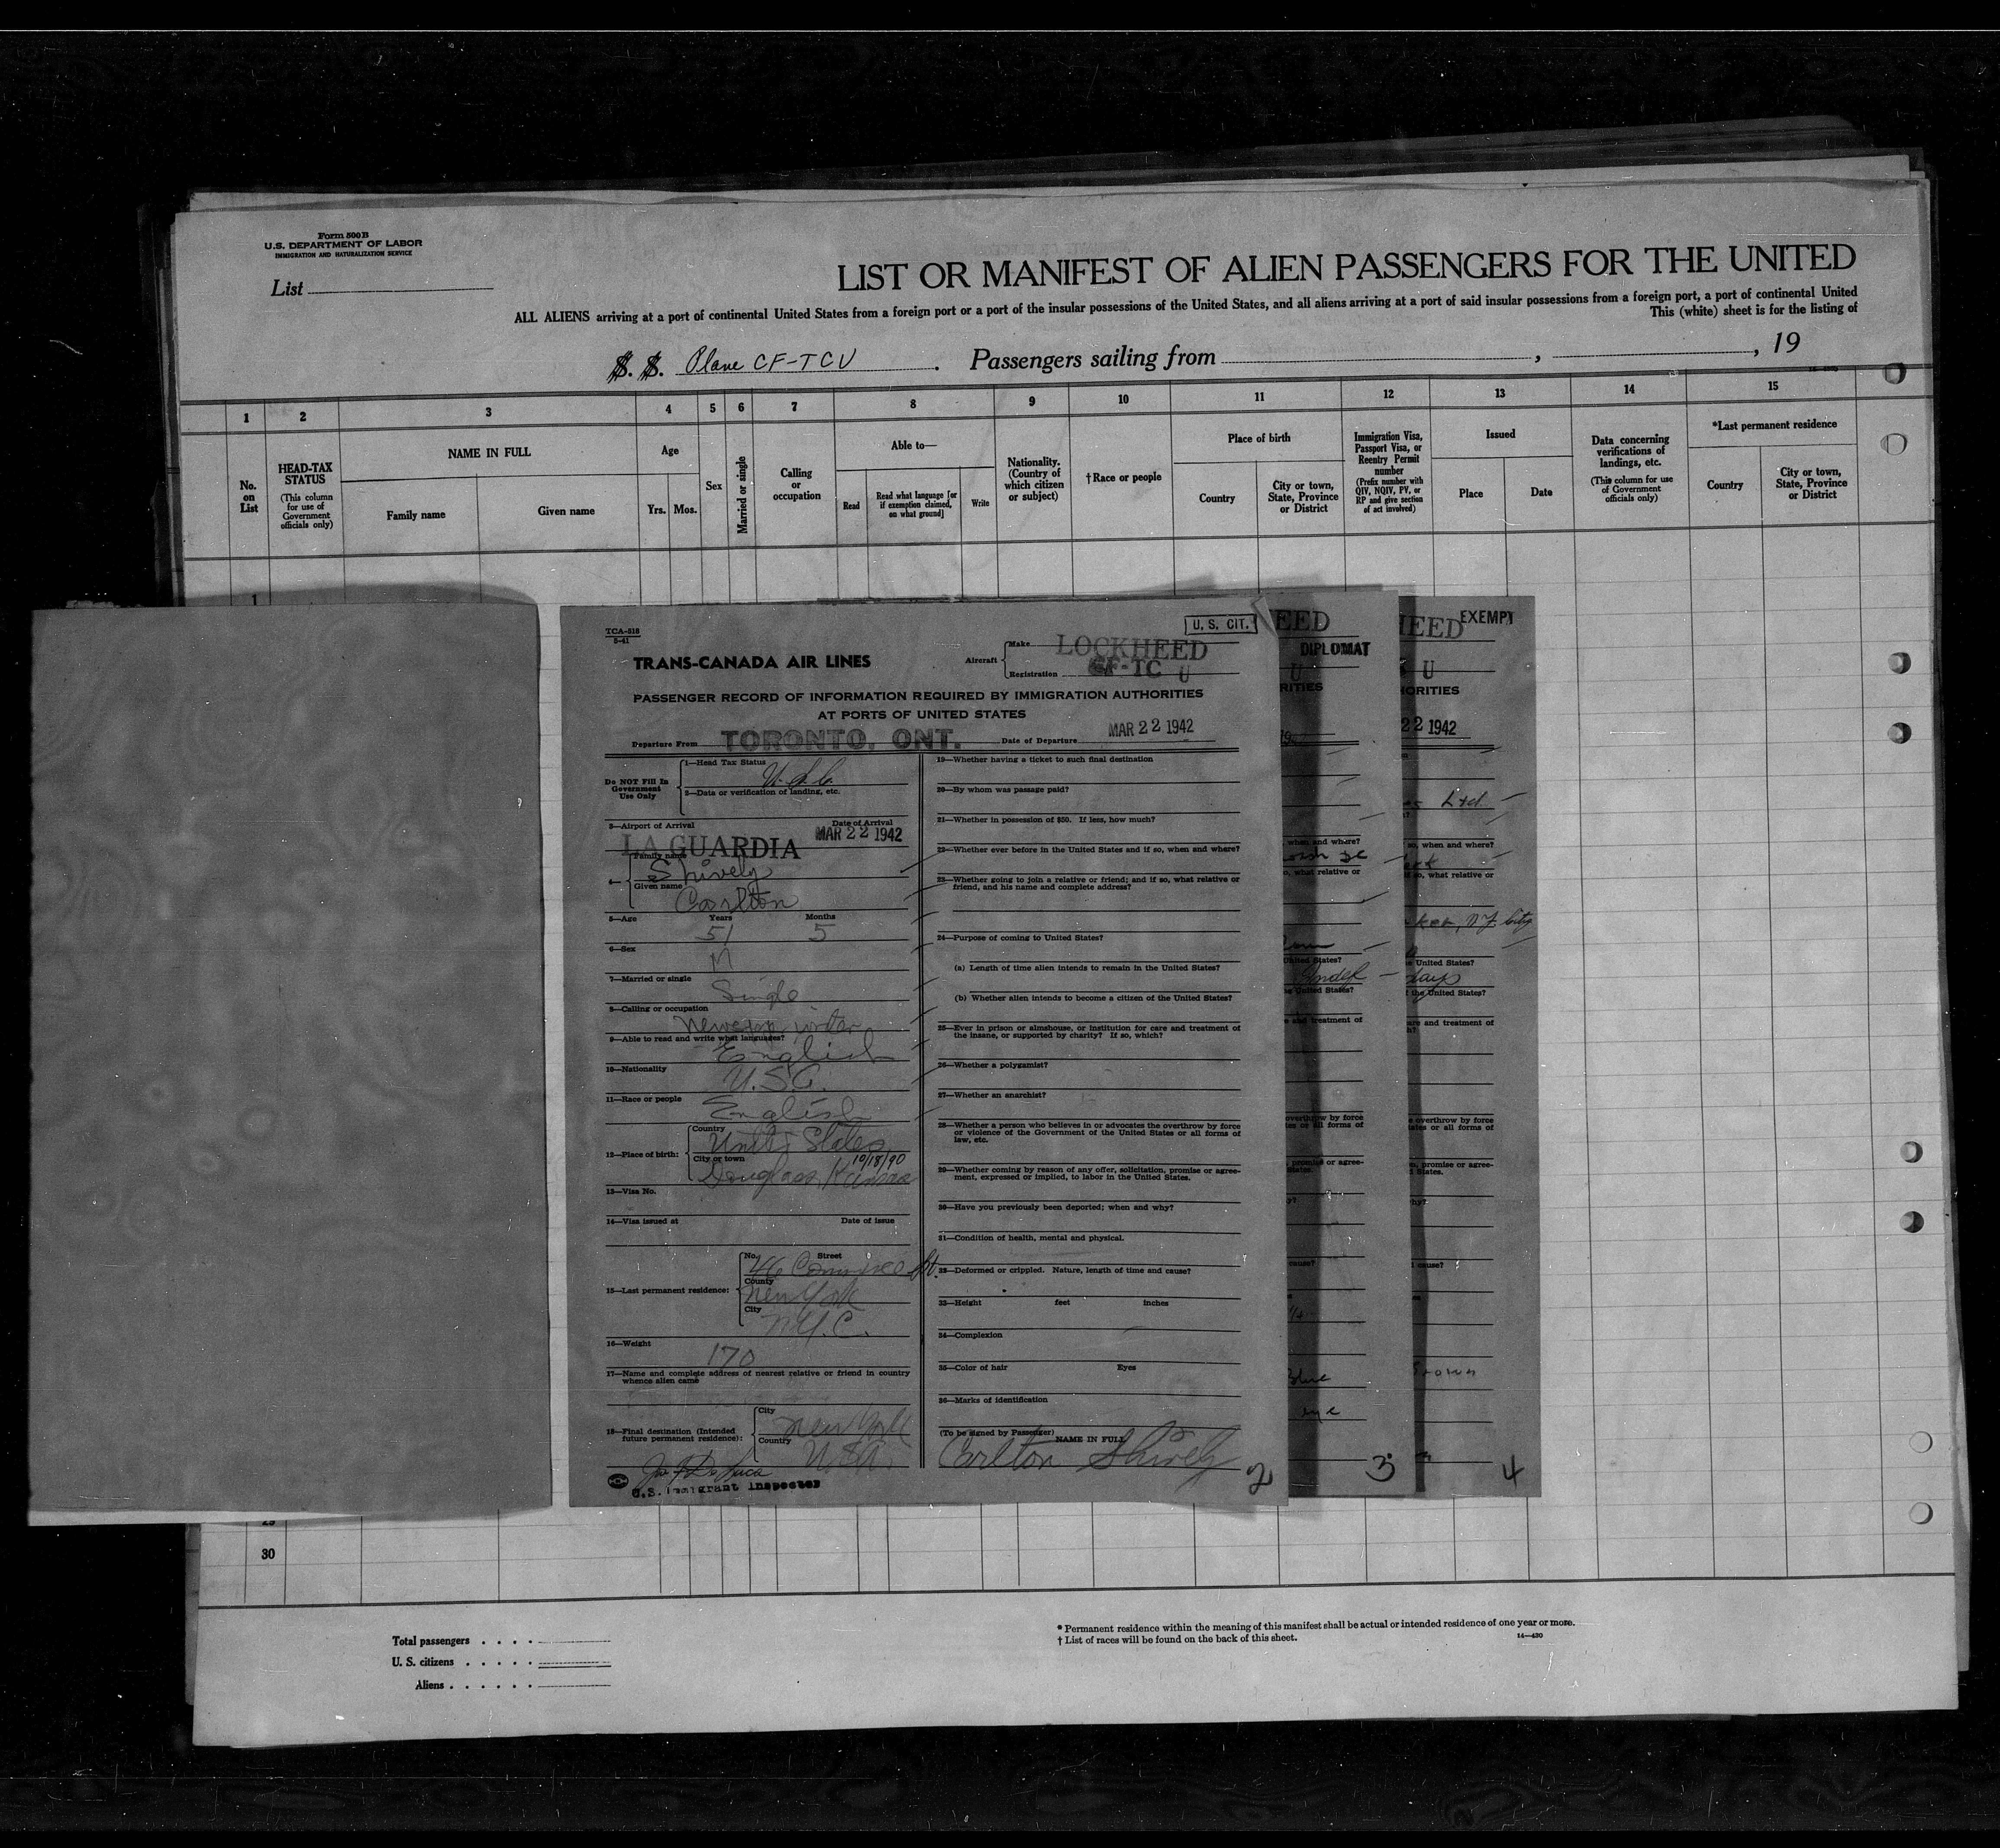 Form 500B
U.S. DEPARTMENT OF LABOR
IMMIGRATION AND NATURALIZATION SERVICE
List
LIST OR MANIFEST OF ALIEN PASSENGERS FOR THE UNITED
ALL ALIENS arriving at a port of continental United States from a foreign port or a port of the insular possessions of the United States, and all aliens arriving at a port of said insular possessions from a foreign port, a port of continental United
This (white) sheet is for the listing of
S. S. Plane CF-TCU. Passengers sailing from , , 19
1 2 3 4 5 6 7 8 9 10 11 12 13 14 15
No. on List
HEAD-TAX STATUS
(This column for use of Government officials only)
NAME IN FULL
Family name
Given name
Age
Yrs. Mos.
Sex
Married or single
Calling or occupation
Able to—
Read
Read what language [or if exemption claimed, on what ground]
Write
Nationality. (Country of which citizen or subject)
†Race or people
Place of birth
Country
City or town, State, Province or District
Immigration Visa, Passport Visa, or Reentry Permit number
(Prefix number with QIV, NQIV, PV, or RP and give section of act involved)
Issued
Place
Date
Data concerning verifications of landings, etc.
(This column for use of Government officials only)
*Last permanent residence
Country
City or town, State, Province or District
1
TCA-818
5-41
U. S. CIT.
TRANS-CANADA AIR LINES
Aircraft
Make LOCKHEED
Registration CF-TC U
PASSENGER RECORD OF INFORMATION REQUIRED BY IMMIGRATION AUTHORITIES
AT PORTS OF UNITED STATES
Departure From TORONTO, ONT. Date of Departure MAR 22 1942
Do NOT Fill In Government Use Only
1—Head Tax Status
2—Data or verification of landing, etc.
3—Airport of Arrival Date of Arrival
LA GUARDIA MAR 22 1942
4— Family name Shively
Given name Carlton
5—Age Years 51 Months 5
6—Sex M
7—Married or single Single
8—Calling or occupation
9—Able to read and write what languages? English
10—Nationality
11—Race or people English
12—Place of birth: Country United States
City or town 10/18/90
Douglass, Kansas
13—Visa No.
14—Visa issued at Date of issue
15—Last permanent residence: No. Street 46 Commerce St.
County New York
City N.Y.C.
16—Weight 170
17—Name and complete address of nearest relative or friend in country whence alien came
18—Final destination (Intended future permanent residence): City New York
Country
U.S. Immigrant Inspector
19—Whether having a ticket to such final destination
20—By whom was passage paid?
21—Whether in possession of $50. If less, how much?
22—Whether ever before in the United States and if so, when and where?
23—Whether going to join a relative or friend; and if so, what relative or friend, and his name and complete address?
24—Purpose of coming to United States?
(a) Length of time alien intends to remain in the United States?
(b) Whether alien intends to become a citizen of the United States?
25—Ever in prison or almshouse, or institution for care and treatment of the insane, or supported by charity? If so, which?
26—Whether a polygamist?
27—Whether an anarchist?
28—Whether a person who believes in or advocates the overthrow by force or violence of the Government of the United States or all forms of law, etc.
29—Whether coming by reason of any offer, solicitation, promise or agreement, expressed or implied, to labor in the United States.
30—Have you previously been deported; when and why?
31—Condition of health, mental and physical.
32—Deformed or crippled. Nature, length of time and cause?
33—Height feet inches
34—Complexion
35—Color of hair Eyes
36—Marks of identification
(To be signed by Passenger) NAME IN FULL
Carlton Shively
2
EED
DIPLOMAT
U
Blue
3
EED
EXEMPT
U
ORITIES
22 1942
Ltd.
days
Brown
4
30
Total passengers
U. S. citizens
Aliens
* Permanent residence within the meaning of this manifest shall be actual or intended residence of one year or more.
† List of races will be found on the back of this sheet.
14—430